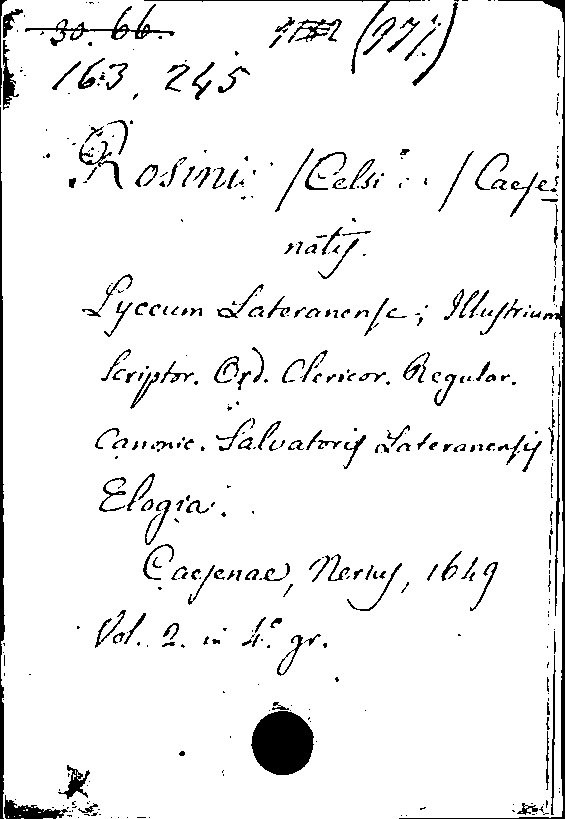 30. 66. (977)
163, 245
Rosini /Celsi / Caese=
natis.
Lyceum Lateranense; Illustrium
Scriptor. Ord. Clericor. Regular.
Canonic. Salvatoris Lateranensis
Elogia.
Caesenae, Nerius, 1649
Vol. 2. in 4.° gr.